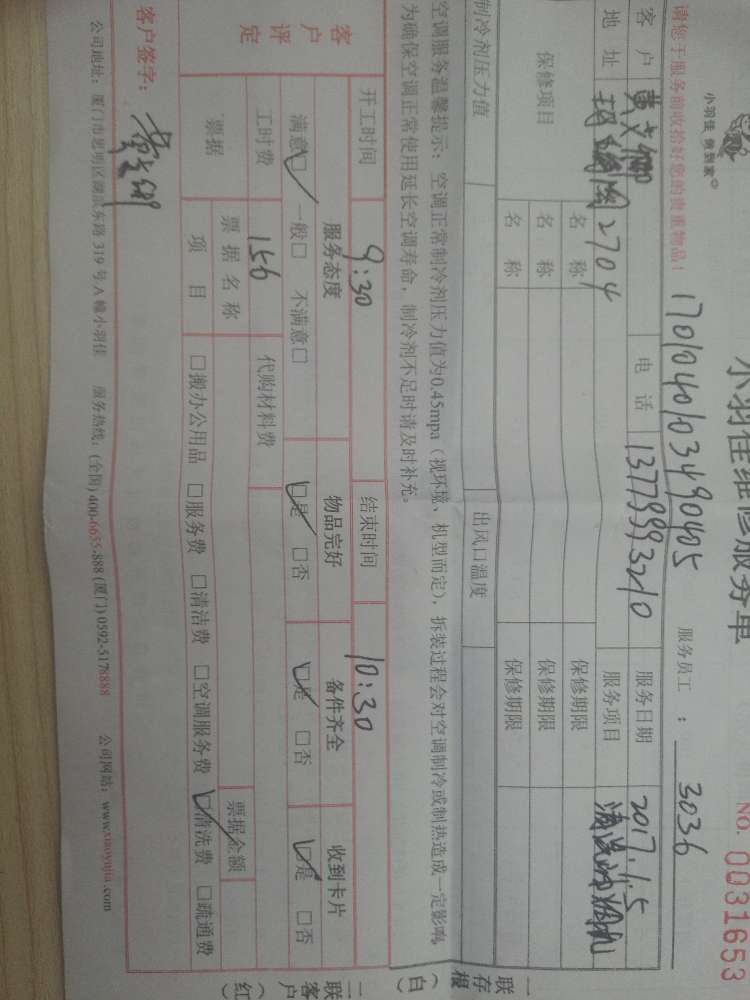 小羽佳维修服务单
NO. 0031653
小羽佳 做到家
1701040103490405
服务员工 : 3036
请您于服务前收拾好您的贵重物品!
客 户 电 话 13779993210 服务日期 2017.1.5
地 址 2704 服务项目 清洗
保修项目 名 称 保修期限
名 称 保修期限
名 称 保修期限
制冷剂压力值 出风口温度
空调服务温馨提示:空调正常制冷剂压力值为0.45mpa(视环境、机型而定),拆装过程会对空调制冷或制热造成一定影响,
为确保空调正常使用延长空调寿命,制冷剂不足时请及时补充。
客户评定 开工时间 9:30 结束时间 10:30
服务态度 物品完好 备件齐全 收到卡片
满意□ 一般□ 不满意□ □是 □否 □是 □否 □是 □否
工时费 156 代购材料费
票据 票据名称 票据金额
项 目 □搬办公用品 □服务费 □清洁费 □空调服务费 □清洗费 □疏通费
客户签字:
公司地址:厦门市思明区湖滨东路 319 号 A 幢小羽佳 服务热线:(全国) 400-6655-888 (厦门) 0592-5178888 公司网站:www.xiaoyujia.com
一联存根(白)
二联客户(红